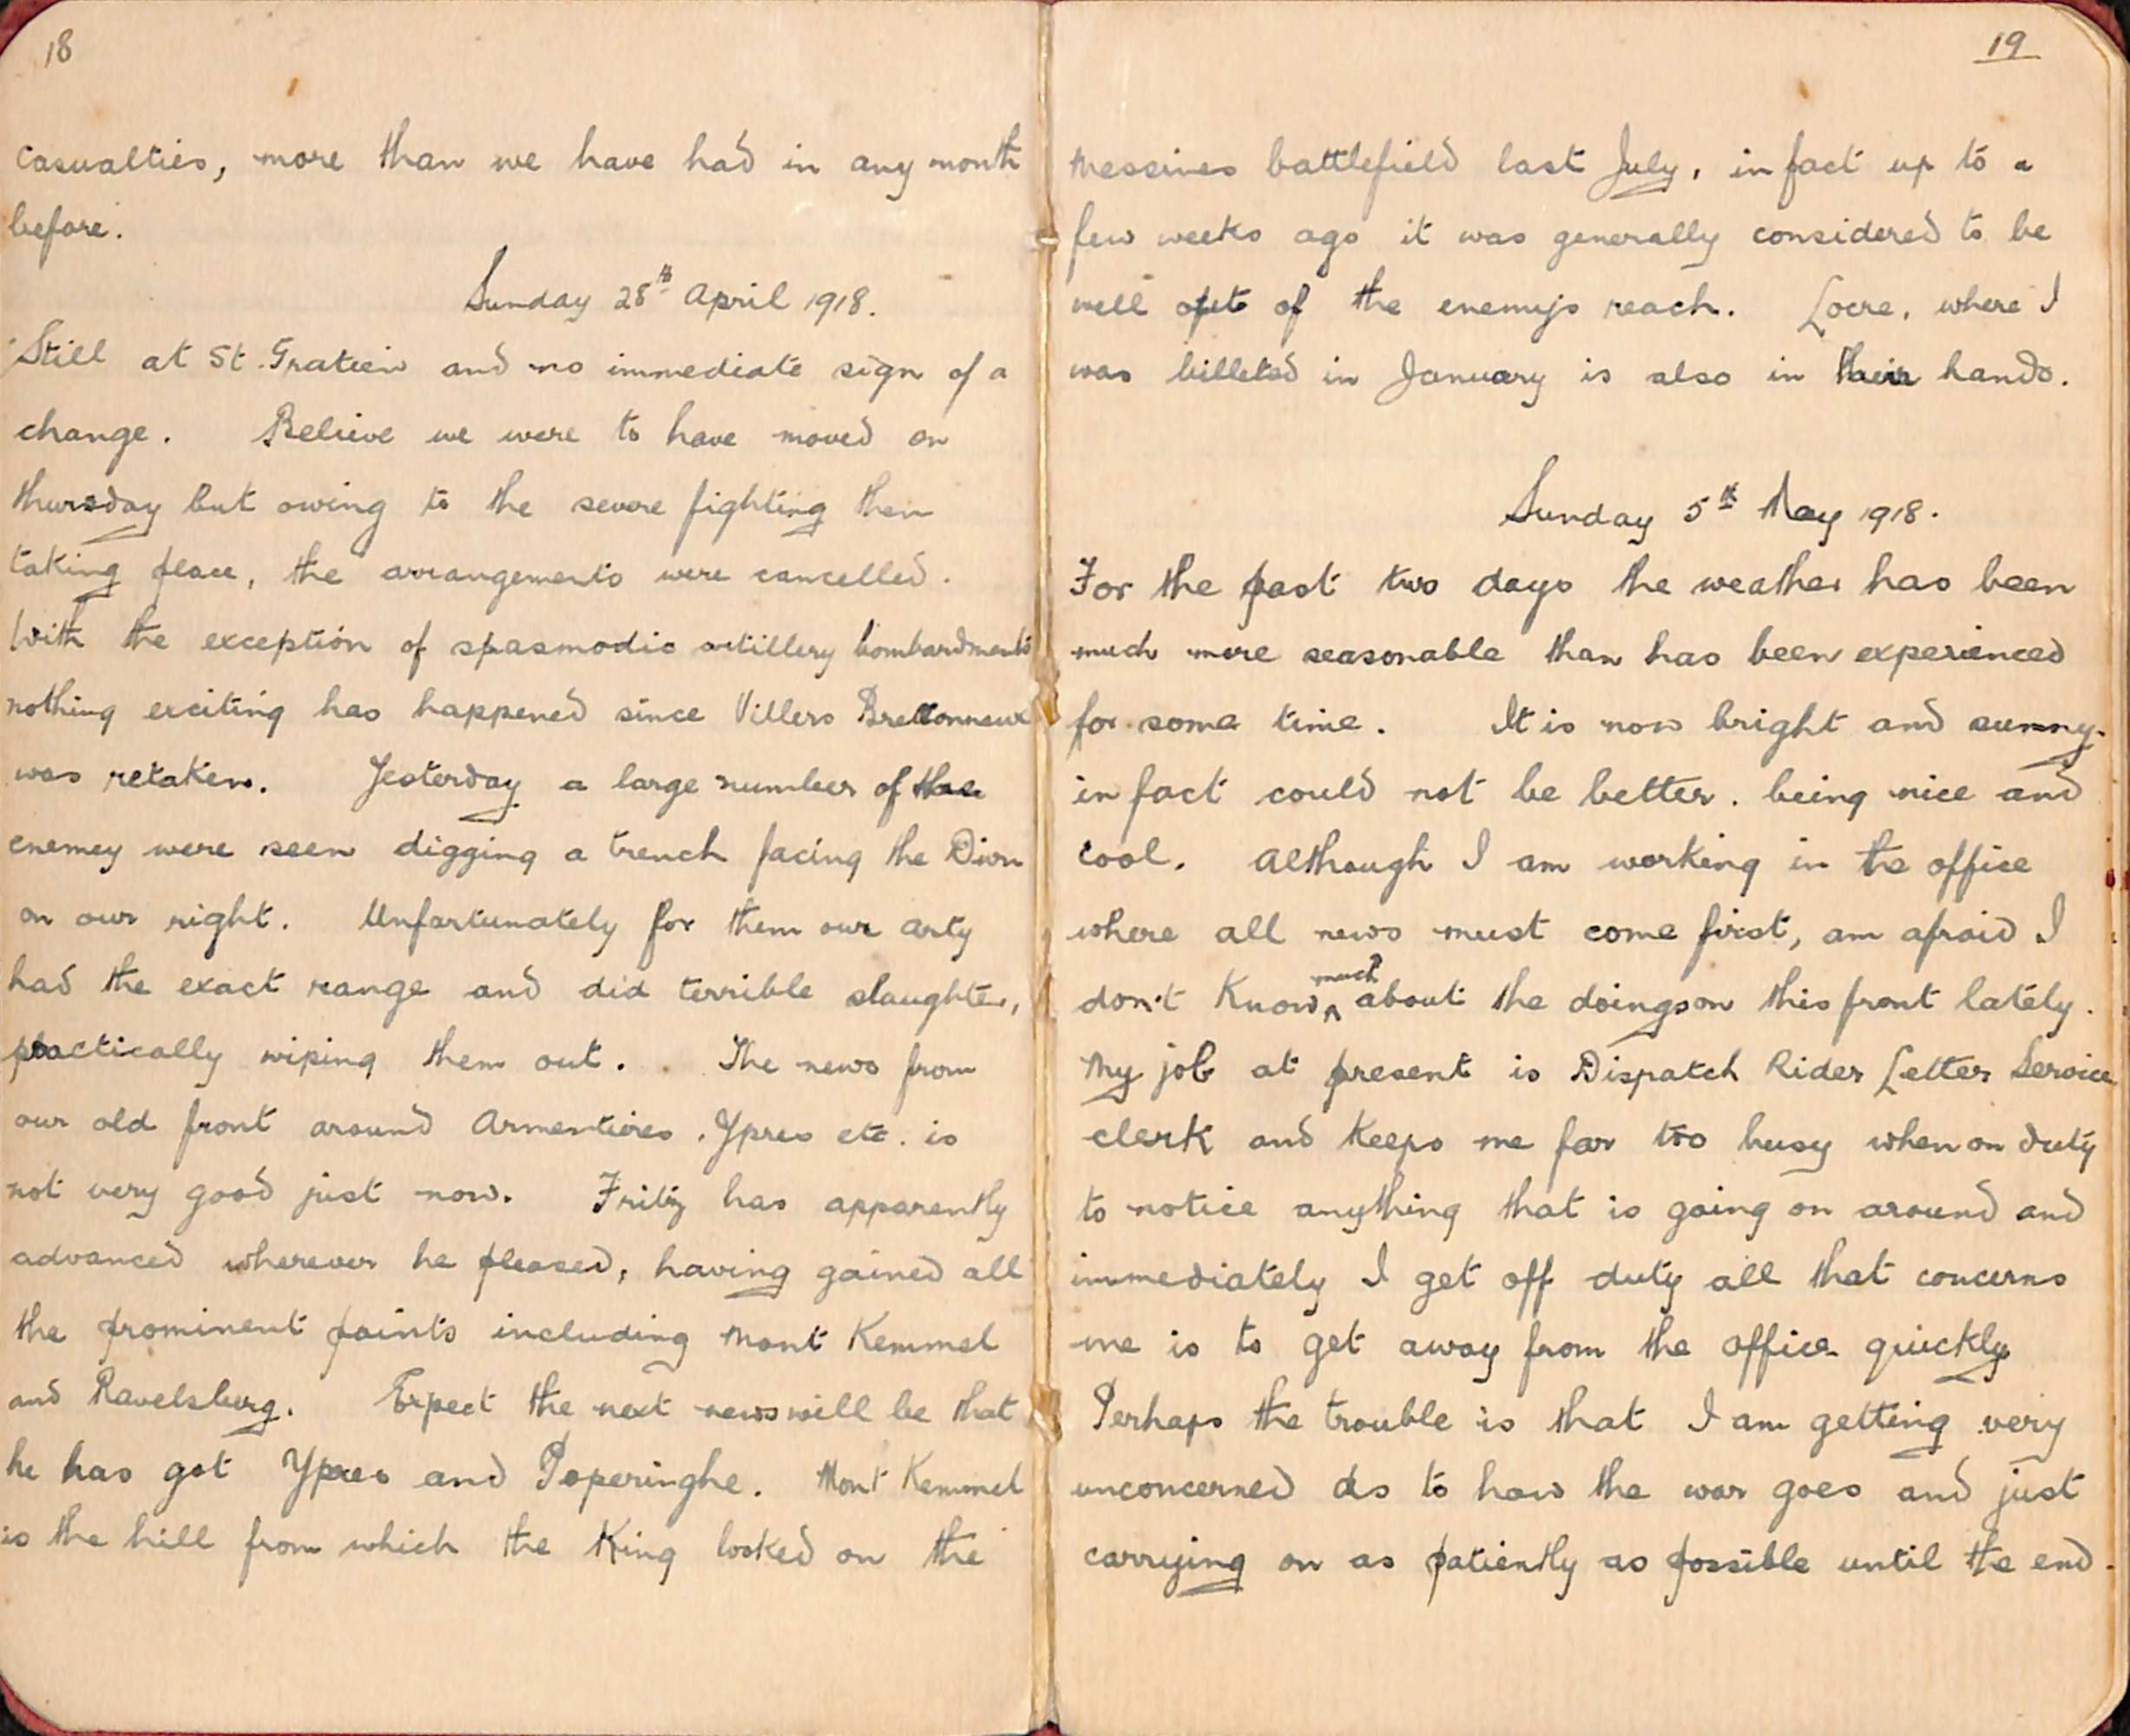 18
casualties, more than we have had in any month
before.
Sunday 28th April 1918.
Still at St. Gratien and no immediate sign of a
change. Believe we were to have moved on
thursday but owing to the severe fighting then
taking place, the arrangements were cancelled.
With the exception of spasmodic artillery bombardments
nothing exciting has happened since Villers Bretonneux
was retaken. Yesterday a large number of the
enemey were seen digging a trench facing the Divn
on our right. Unfortunately for them our arty
had the exact range and did terrible slaughter,
practically wiping them out. The news from
our old front around Armentieres, Ypres etc. is
not very good just now. Fritz has apparently
advanced wherever he pleased, having gained all
the prominent points including Mont Kemmel
and Ravelsburg. Expect the next news will be that
he has got Ypres and Poperinghe. Mont Kemmel
is the hill from which the King looked on the
19
Messines battlefield last July, in fact up to a
few weeks ago it was generally considered to be
well out of the enemys reach. Locre, where I
was billeted in January is also in their hands.
Sunday 5th May 1918.
For the past two days the weather has been
much more seasonable than has been experienced
for some time. It is now bright and sunny.
in fact could not be better. being nice and
cool. Although I am working in the office
where all news must come first, am afraid I
don't know much about the doings on this front lately.
My job at present is Dispatch Rider Letter Service
clerk and keeps me far too busy when on duty
to notice anything that is going on around and
immediately I get off duty all that concerns
me is to get away from the office quickly
Perhaps the trouble is that I am getting very
unconcerned as to how the war goes and just
carrying on as patiently as possible until the end.